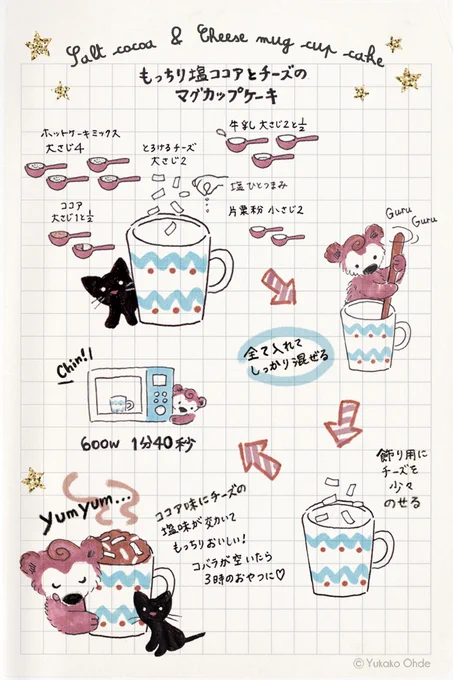 Salt cocoa & Cheese mug cup cake
もっちり塩ココアとチーズの
マグカップケーキ
ホットケーキミックス
大さじ4
とろけるチーズ
大さじ2
牛乳 大さじ2と1/2
塩ひとつまみ
ココア
大さじ1と1/2
片栗粉 小さじ2
Guru
Guru
全て入れて
しっかり混ぜる
Chin!!
600W 1分40秒
飾り用に
チーズを
少々
のせる
Yum yum...
ココア味にチーズの
塩味が効いて
もっちりおいしい!
コバラが空いたら
3時のおやつに♡
© Yukako Ohde